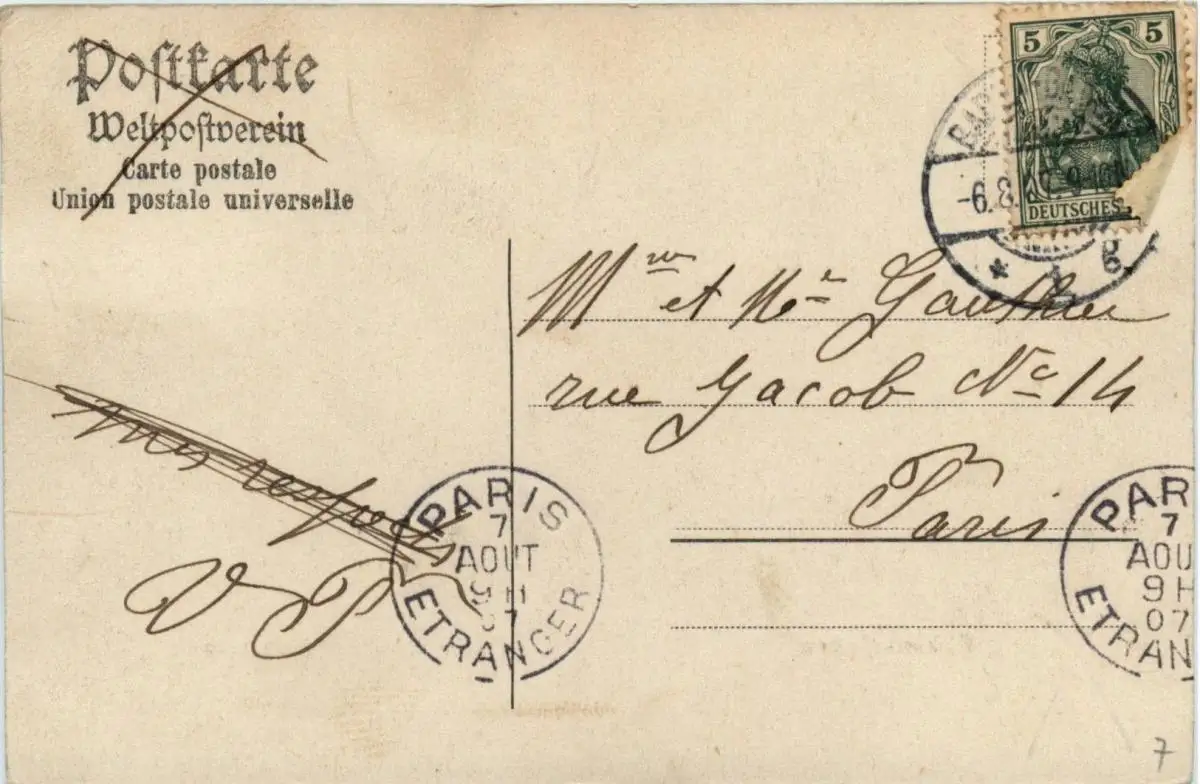 Postkarte
Weltpostverein
Carte postale
Union postale universelle
5 5
DEUTSCHES
-6.8. 9-10
* 1 g.
Mr et Me Gauthier
rue Jacob No 14
Paris
mes respects
V P
PARIS
7
AOUT
9H
07
ETRANGER
PAR
7
AOU
9H
07
ETRAN
7